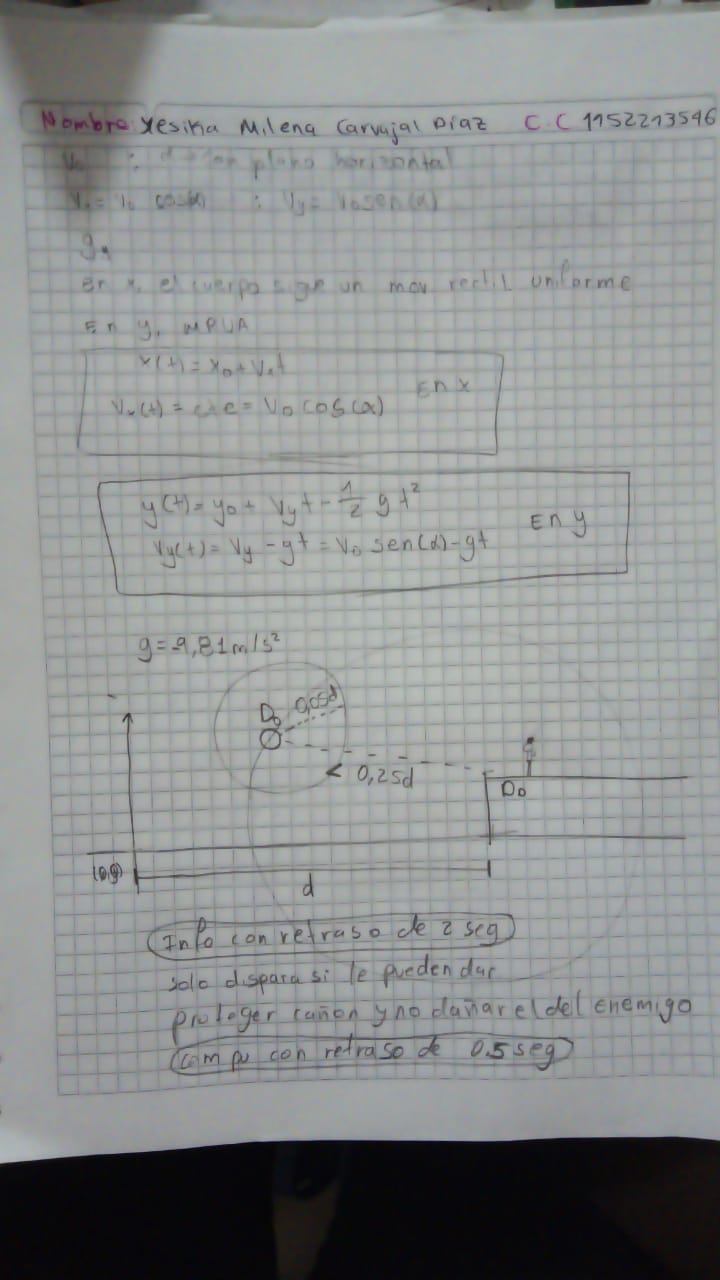 Nombre: Yesika Milena Carvajal Diaz C.C 1152213546
plano horizontal
Vx = V0 cos(α) : Vy = V0 sen(α)
g
En x, el cuerpo sigue un mov rectil uniforme
En y, MRUA
x(t) = x0 + Vxt
Vx(t) = cte = V0 cos(α) En x
y(t) = y0 + Vyt - 1/2 g t²
Vy(t) = Vy - gt = V0 sen(α) - gt En y
g = -9,81 m/s²
0,05d
Do
< 0,25d
Do
(0,0)
d
Info con retraso de 2 seg
solo dispara si le pueden dar
proteger cañon y no dañar el del enemigo
compu con retraso de 0.5 seg